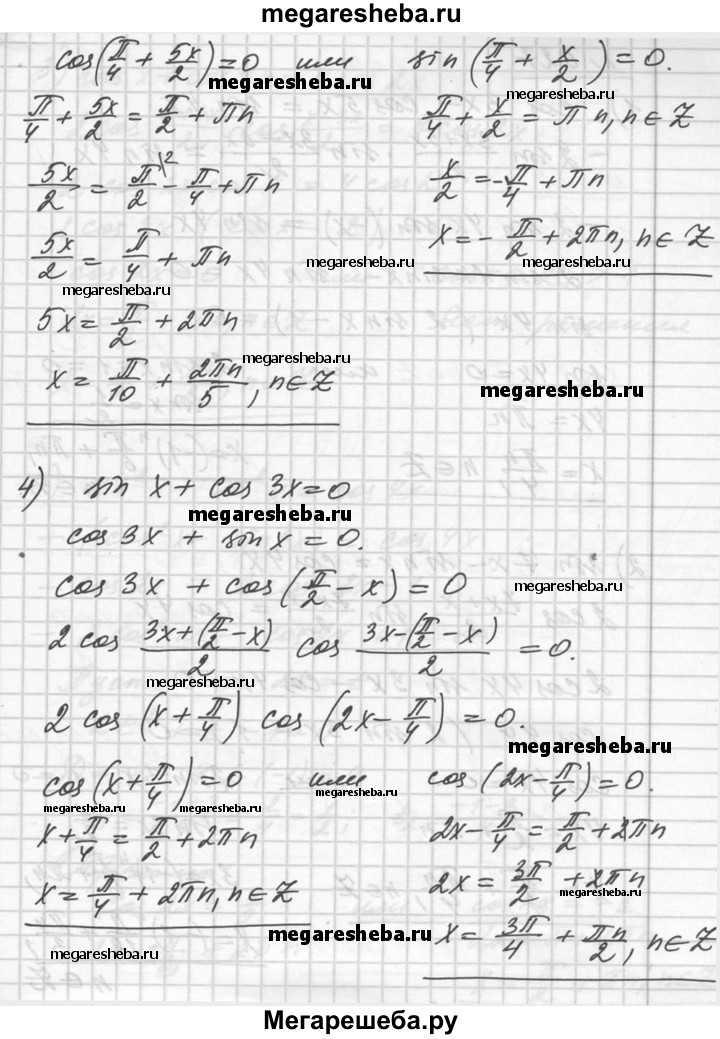 megaresheba.ru
cos(π/4 + 5x/2) = 0 или sin(π/4 + x/2) = 0.
megaresheba.ru
megaresheba.ru
π/4 + 5x/2 = π/2 + πn
π/4 + x/2 = πn, n ∈ Z
5x/2 = π/2 |2 - π/4 + πn
x/2 = -π/4 + πn
5x/2 = π/4 + πn
x = -π/2 + 2πn, n ∈ Z
megaresheba.ru
megaresheba.ru
megaresheba.ru
5x = π/2 + 2πn
megaresheba.ru
x = π/10 + 2πn/5, n ∈ Z
megaresheba.ru
4) sin x + cos 3x = 0
megaresheba.ru
cos 3x + sin x = 0.
cos 3x + cos(π/2 - x) = 0
megaresheba.ru
2 cos (3x+(π/2-x))/2 cos (3x-(π/2-x))/2 = 0.
megaresheba.ru
2 cos(x + π/4) cos(2x - π/4) = 0.
megaresheba.ru
cos(x + π/4) = 0 или cos(2x - π/4) = 0.
megaresheba.ru megaresheba.ru megaresheba.ru megaresheba.ru
x + π/4 = π/2 + 2πn
2x - π/4 = π/2 + 2πn
x = π/4 + 2πn, n ∈ Z
2x = 3π/2 + 2πn
megaresheba.ru
x = 3π/4 + πn/2, n ∈ Z
megaresheba.ru
megaresheba.ru
megaresheba.ru
Мегарешеба.ру